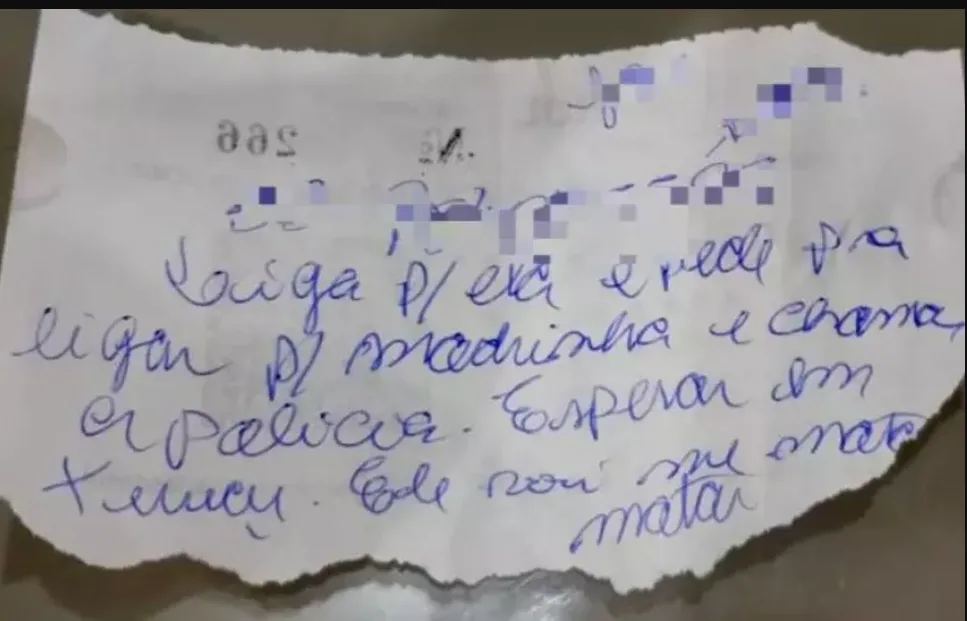 266
Nº
Liga p/ ela e pede pra
ligar p/ madrinha e chama
a polícia. Esperar em
Ele vai me mata
matar